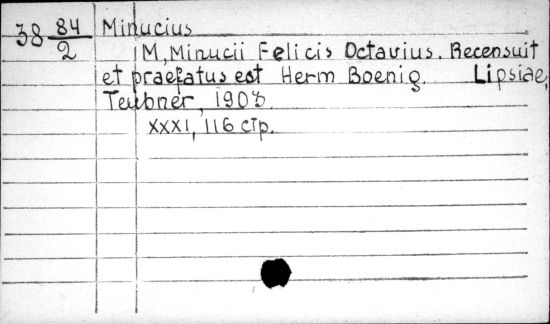 38 84/2 Minucius
M, Minucii Felicis Octavius. Recensuit
et praefatus est Herm Boenig. Lipsiae,
Teubner, 1903.
XXXI, 116 стр.